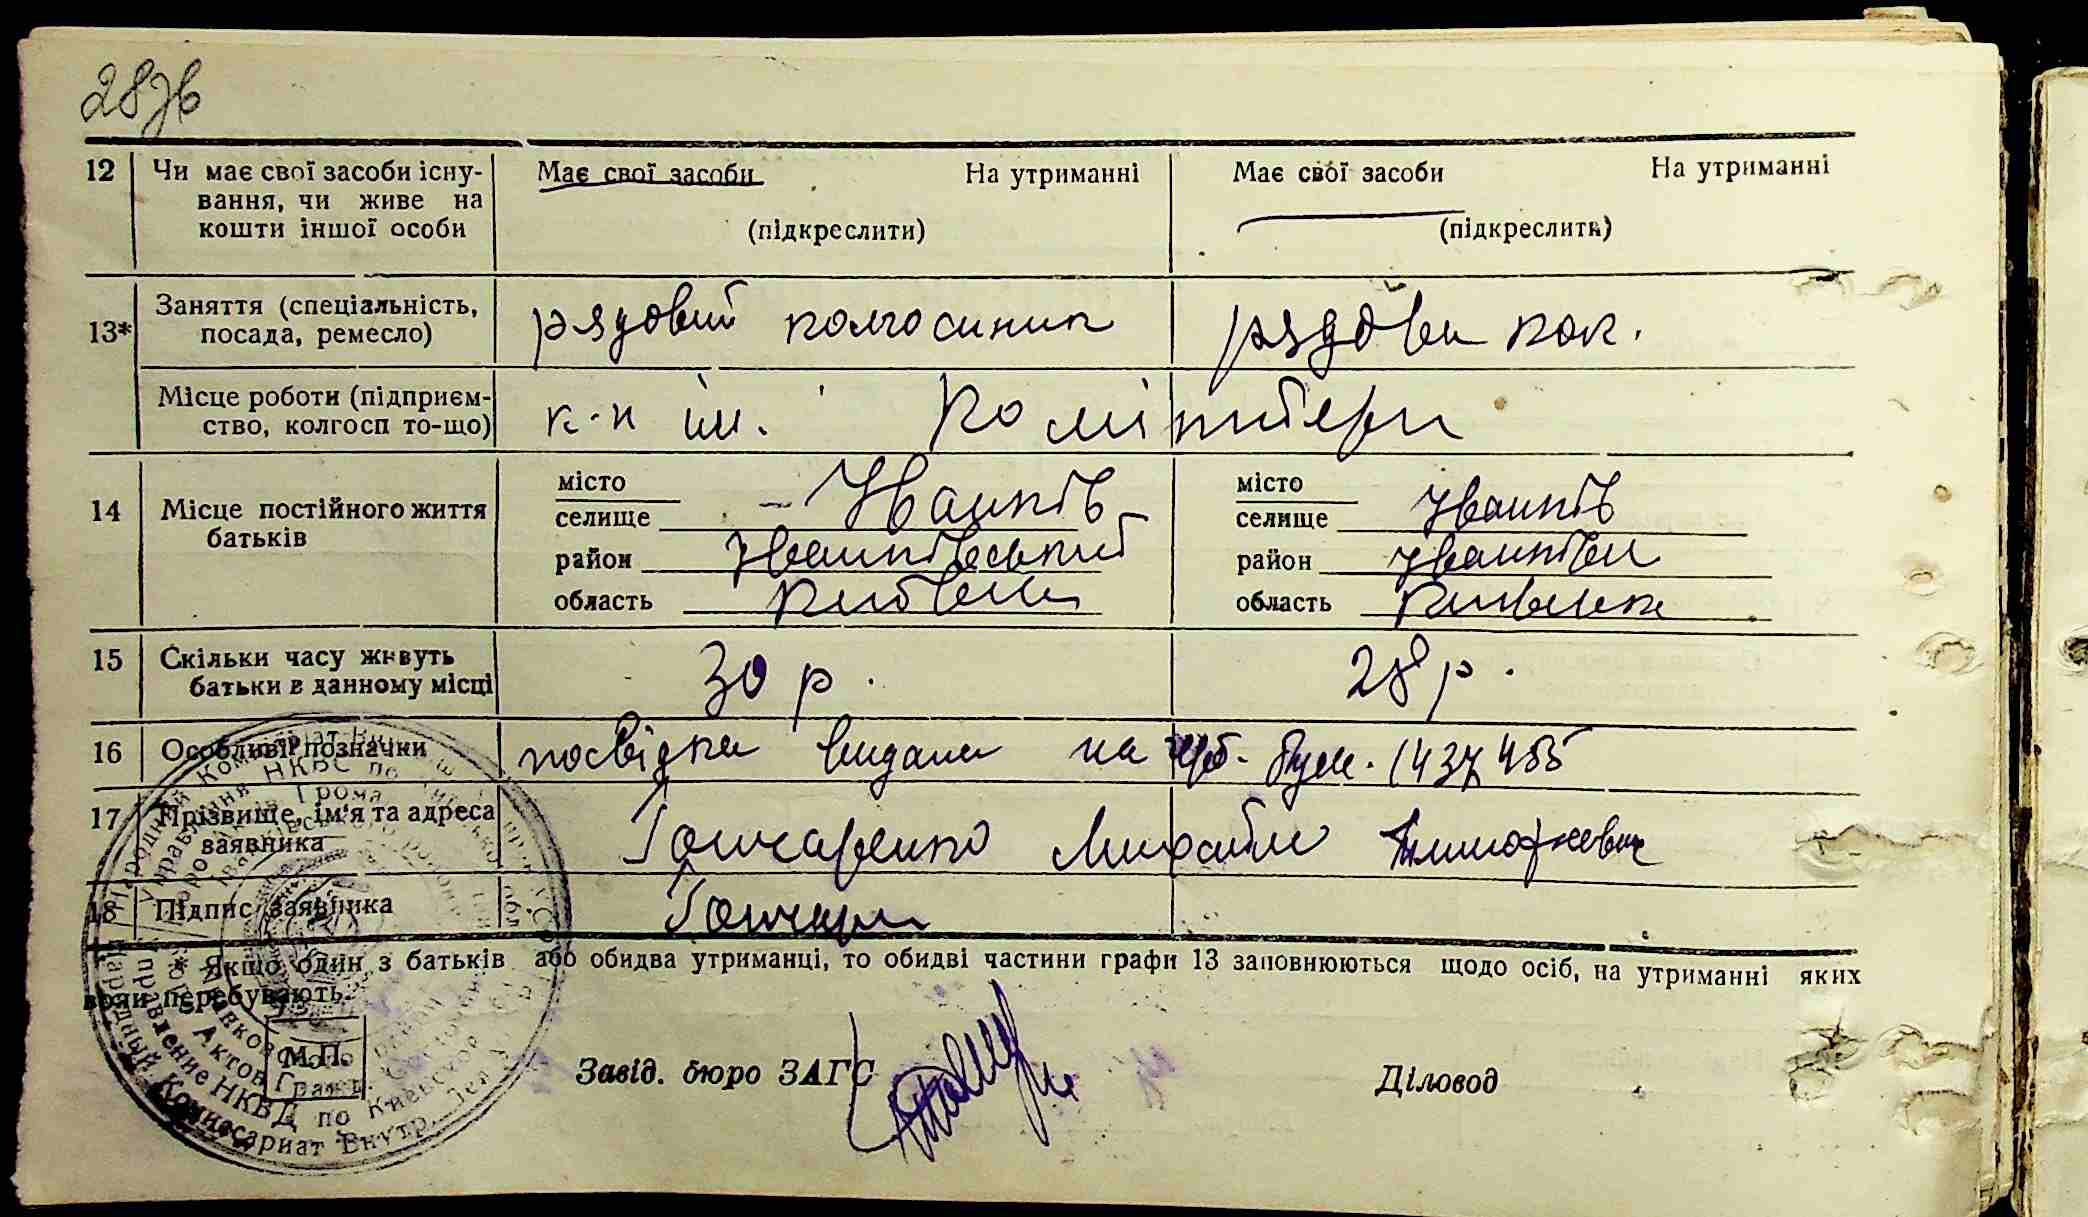 287б
12 Чи має свої засоби існу- Має свої засоби На утриманні Має свої засоби На утриманні
вання, чи живе на
кошти іншої особи (підкреслити) (підкреслити)
13* Заняття (спеціальність, рядовий колгоспник рядови кол.
посада, ремесло)
Місце роботи (підприєм- к-п ім. Комінтерн
ство, колгосп то-що)
14 Місце постійного життя місто Іванків місто Іванків
батьків селище селище
район Іванківський район Іванківськи
область Київськ область Київська
15 Скільки часу живуть 30 р. 28 р.
батьки в данному місці
16 Особливії позначки посвідка видана на герб. бум. 1437455
17 Прізвище, ім'я та адреса Гончаренко Михайло Тимофієвич
заявника
18 Підпис заявника Гончарен
* Якщо один з батьків або обидва утриманці, то обидві частини графи 13 заповнюються щодо осіб, на утриманні яких
вони перебувають.
М.П.
Завід. бюро ЗАГС Діловод
Управління НКВС по
Управление НКВД по Киевской
Народный Комиссариат Внутр. Дел